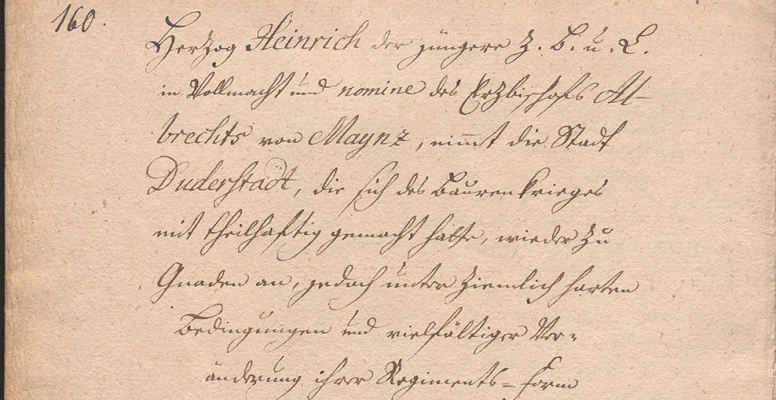 160.
Herzog Heinrich der jüngere Z. B. u. L.
in Vollmacht und nomine des Erzbischofs Al-
brechts von Maynz, nimt die Stadt
Duderstadt, die sich des Baurenkrieges
mit theilhaftig gemacht hatte, wieder zu
Gnaden an, jedoch unter ziemlich harten
Bedingungen und vielfältiger Ver-
änderung ihrer Regiments-form